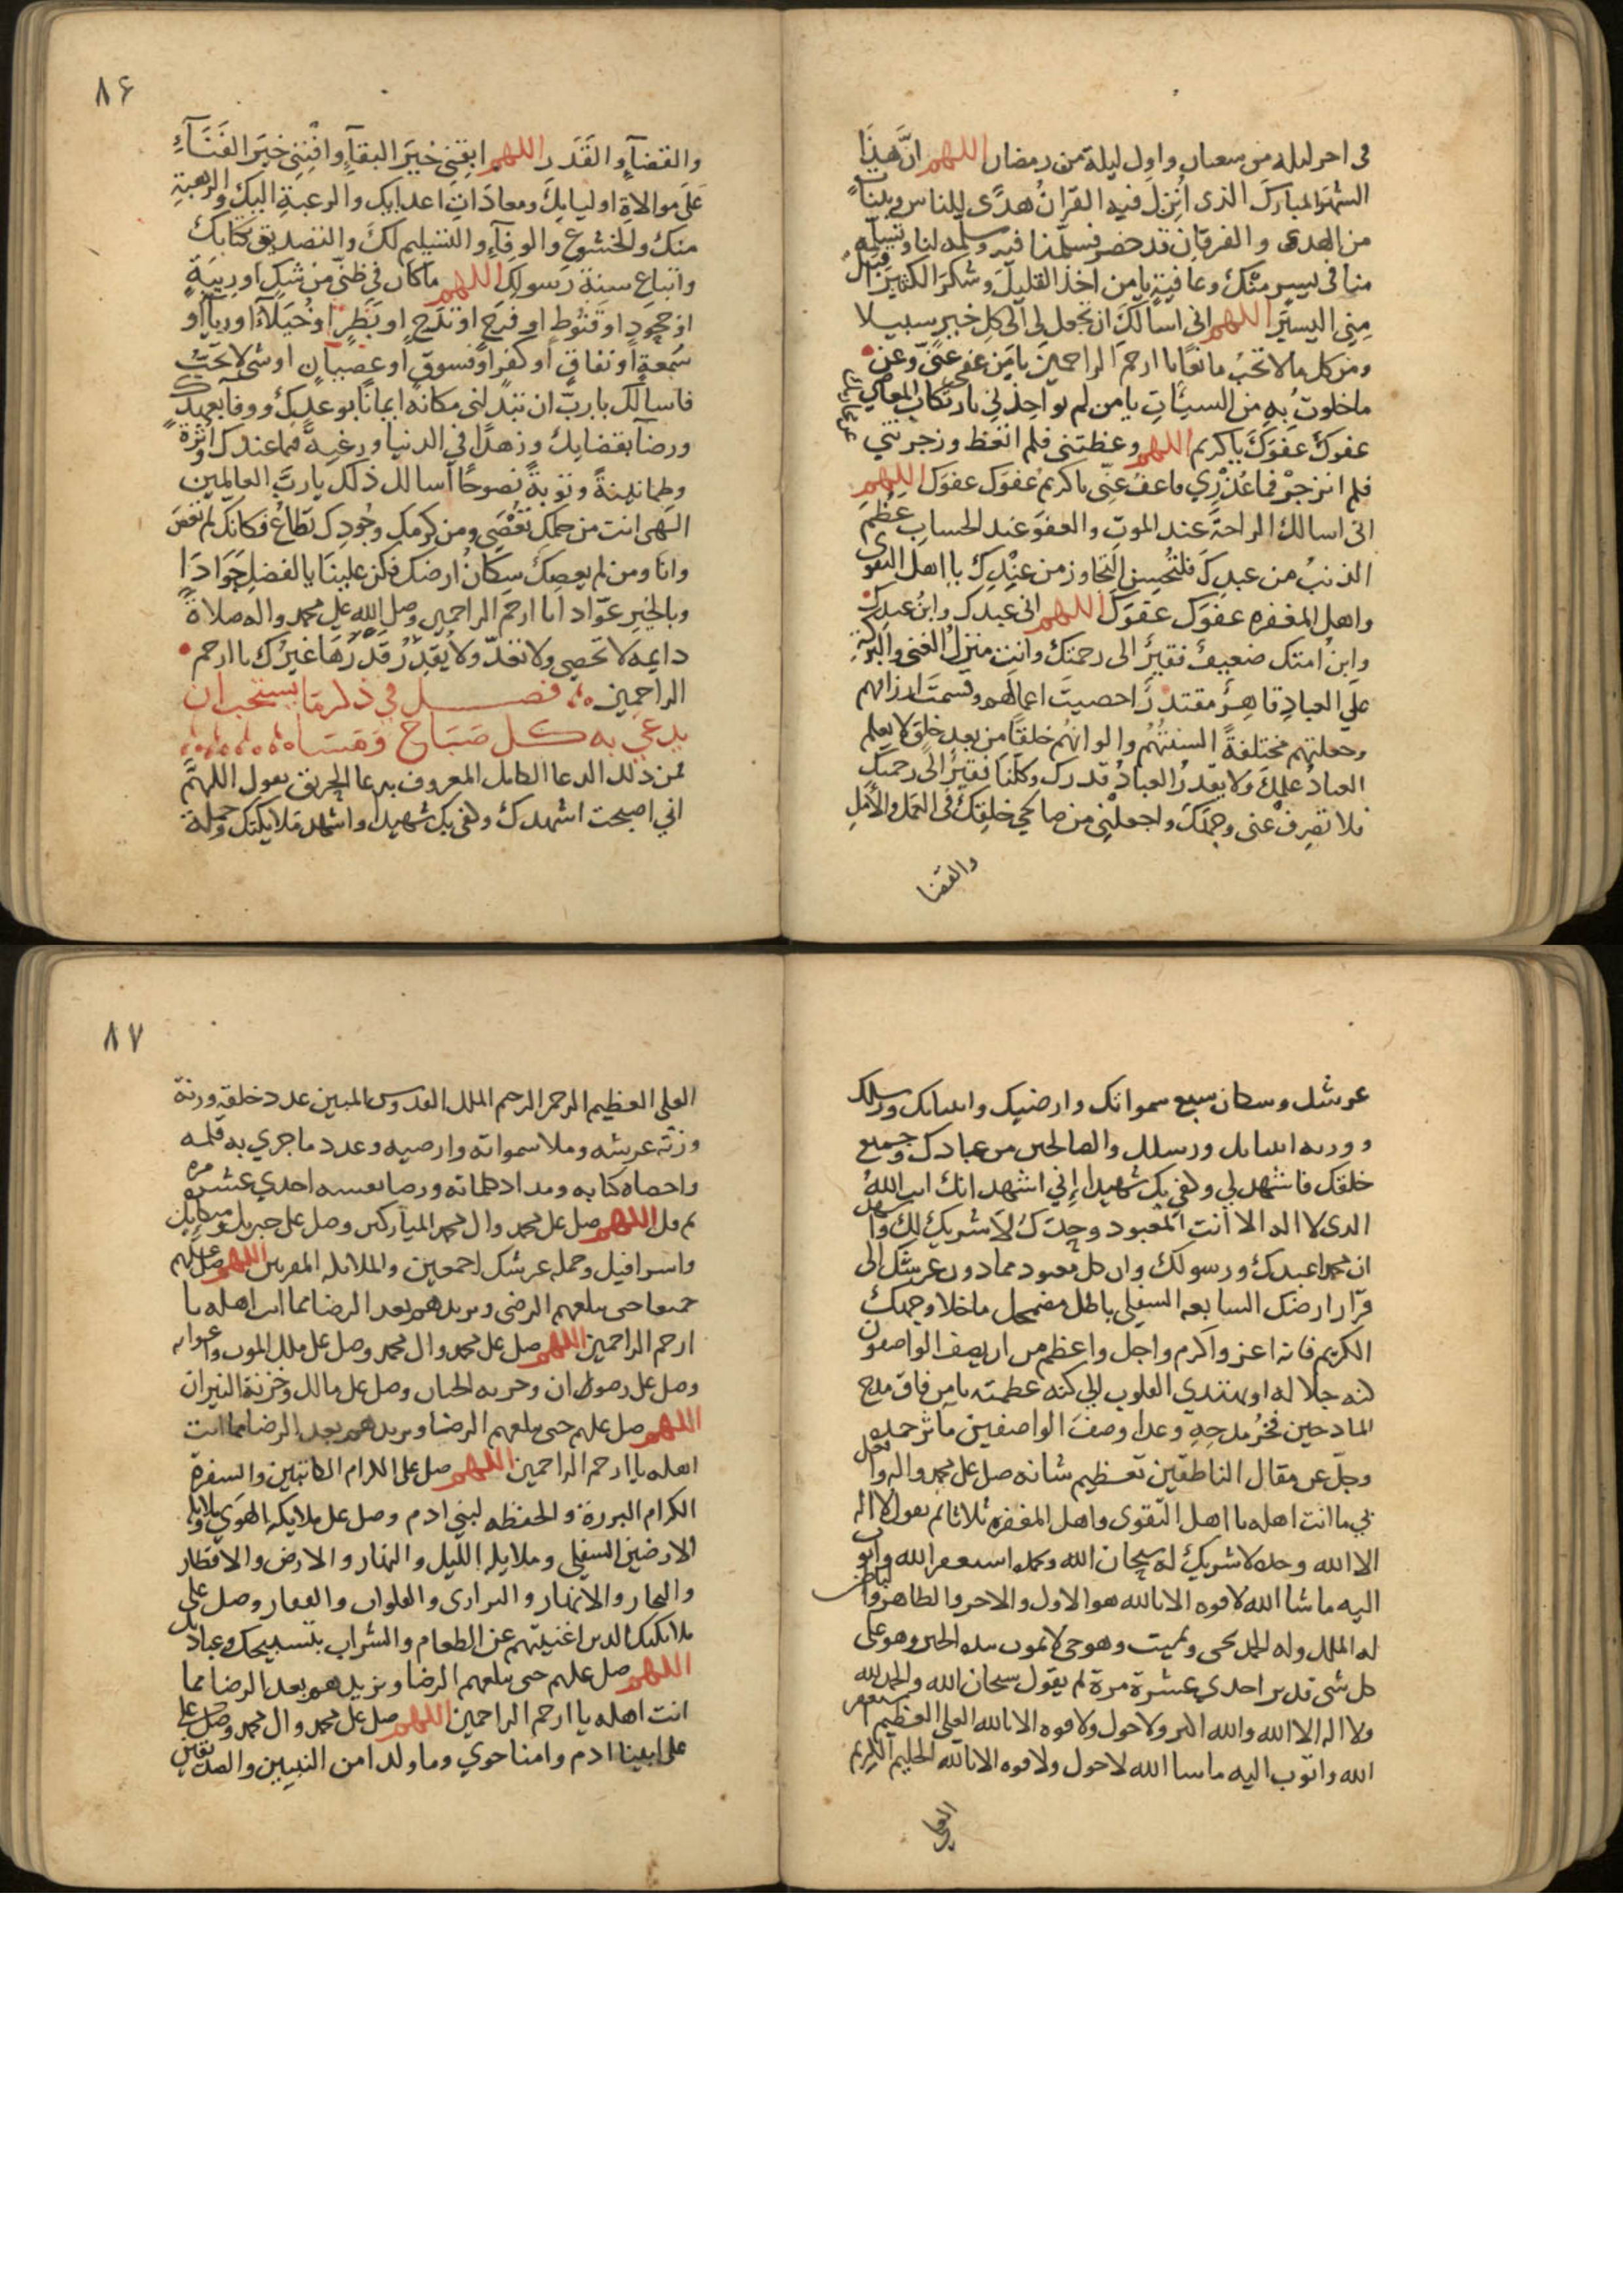 في اخر ليله من شعبان واول ليلة من رمضان اللهم ان هذا
الشهر المبارك الذي انزل فيه القران هدى للناس وبينات
من الهدى والفرقان قد حضر فسلمنا فيه وسلمه لنا وتسلمه
منا في يسر منك وعافية يا من اخذ القليل وشكر الكثير اقبل
مني اليسير اللهم اني اسالك ان تجعل لي الى كل خير سبيلا
ومن كل ما لا تحب مانعا يا ارحم الراحمين يا من عفى عني وعن
ما خلوت به من السيئات يا من لم يواخذني بارتكاب المعاصي
عفوك عفوك يا كريم اللهم وعظتني فلم اتعظ وزجرتني
فلم انزجر فما عذري فاعف عني يا كريم عفوك عفوك اللهم
اني اسالك الراحة عند الموت والعفو عند الحساب عظم
الذنب من عبدك فليحسن التجاوز من عندك يا اهل التقوى
واهل المغفره عفوك عفوك اللهم اني عبدك وابن عبدك
وابن امتك ضعيف فقير الى رحمتك وانت منزل الغنى والبركة
على العباد قاهر مقتدر احصيت اعمالهم وقسمت ارزاقهم
وجعلتهم مختلفة السنتهم والوانهم خلقا من بعد خلق لا يعلم
العباد علمك ولا يقدر العباد قدرك وكلنا فقير الى رحمتك
فلا تصرف عني وجهك واجعلني من صالحي خلقك في العمل والامل
والقضا
٨۶
والقضاء والقدر اللهم ابقني خير البقاء وافنني خير الفناء
على موالاة اوليايك ومعادات اعدايك والرغبة اليك والرهبة
منك والخشوع والوفاء والتسليم لك والتصديق بكتابك
واتباع سنة رسولك اللهم ما كان في ظني من شك او ريبة
او جحود او قنوط او فرح او تدح او بطر او خيلاء او رياء او
سمعة او نفاق او كفر او فسوق او عصيان او شي لا تحب
فاسالك يا رب ان تبدلني مكانه ايمانا بوعدك ووفا بعهدك
ورضا بقضايك وزهدا في الدنيا ورغبة فيما عندك واثرة
وطمانينة وتوبة نصوحا اسالك ذلك يا رب العالمين
الهي انت من حلمك تعصى ومن كرمك وجودك تطاع فكانك لم تعص
وانا ومن لم يعصك سكان ارضك فكن علينا بالفضل جوادا
وبالخير عوادا يا ارحم الراحمين وصل الله على محمد واله صلاة
دايمه لا تحصى ولا تعد ولا يقدر قدرها غيرك يا ارحم
الراحمين فصل في ذكر ما يستحب ان
يدعى به كل صباح ومساء
فمن ذلك الدعا الكامل المعروف بدعا الحريق يقول اللهم
اني اصبحت اشهدك وكفى بك شهيدا واشهد ملايكتك وحملة
عرشك وسكان سبع سمواتك وارضيك وانبيايك ورسلك
وورثه انبيايك ورسلك والصالحين من عبادك وجميع
خلقك فاشهد لي وكفى بك شهيدا اني اشهد انك انت الله
الذي لا اله الا انت المعبود وحدك لا شريك لك وا
ان محمدا عبدك ورسولك وان كل معبود مما دون عرشك الى
قرار ارضك السابعه السفلى باطل مضمحل ما خلا وجهك
الكريم فانه اعز واكرم واجل واعظم من ان يصف الواصفون
كنه جلاله او تهتدي القلوب الى كنه عظمته يا من فاق مدح
المادحين فخر مدحه وعدا وصف الواصفين ماثر حمده
وجل عن مقال الناطقين تعظيم شانه صل على محمد واله وافعل
بي ما انت اهله يا اهل التقوى واهل المغفره ثلاثا ثم يقول لا اله
الا الله وحده لا شريك له سبحان الله وبحمده استغفر الله واتوب
اليه ما شا الله لا قوه الا بالله هو الاول والاخر والظاهر والباطن
له الملك وله الحمد يحيى ويميت وهو حي لا يموت بيده الخير وهو على
كل شي قدير احدي عشرة مرة ثم يقول سبحان الله والحمد لله
ولا اله الا الله والله اكبر ولا حول ولا قوه الا بالله العلي العظيم استغفر
الله واتوب اليه ما شا الله لا حول ولا قوه الا بالله الحليم الكريم
العلي
٨٧
العلي العظيم الرحمن الرحيم الملك القدوس المبين عدد خلقه وزنة
وزنة عرشه وملا سمواته وارضيه وعدد ما جرى به قلمه
واحصاه كتابه ومداد كلماته ورضا نفسه احدي عشره مره
ثم قل اللهم صل على محمد وال محمد المباركين وصل على جبريل وميكايل
واسرافيل وحمله عرشك اجمعين والملايكه المقربين اللهم صل عليهم
جميعا حتى تبلغهم الرضى وتزيدهم بعد الرضا مما انت اهله يا
ارحم الراحمين اللهم صل على محمد وال محمد وصل على ملك الموت واعوانه
وصل على رضوان وخزنه الجنان وصل على مالك وخزنة النيران
اللهم صل عليهم حتى تبلغهم الرضا وتزيدهم بعد الرضا مما انت
اهله يا ارحم الراحمين اللهم صل على الكرام الكاتبين والسفرة
الكرام البررة والحفظه لبني ادم وصل على ملايكه الهوى وملايكه
الارضين السفلى وملايكه الليل والنهار والارض والاقطار
والبحار والانهار والبرارى والفلوات والقفار وصل على
ملايكتك الذين اغنيتهم عن الطعام والشراب بتسبيحك وعبادتك
اللهم صل عليهم حتى تبلغهم الرضا وتزيدهم بعد الرضا مما
انت اهله يا ارحم الراحمين اللهم صل على محمد وال محمد وصل على
على ابينا ادم وامنا حوى وما ولدا من النبيين والصديقين